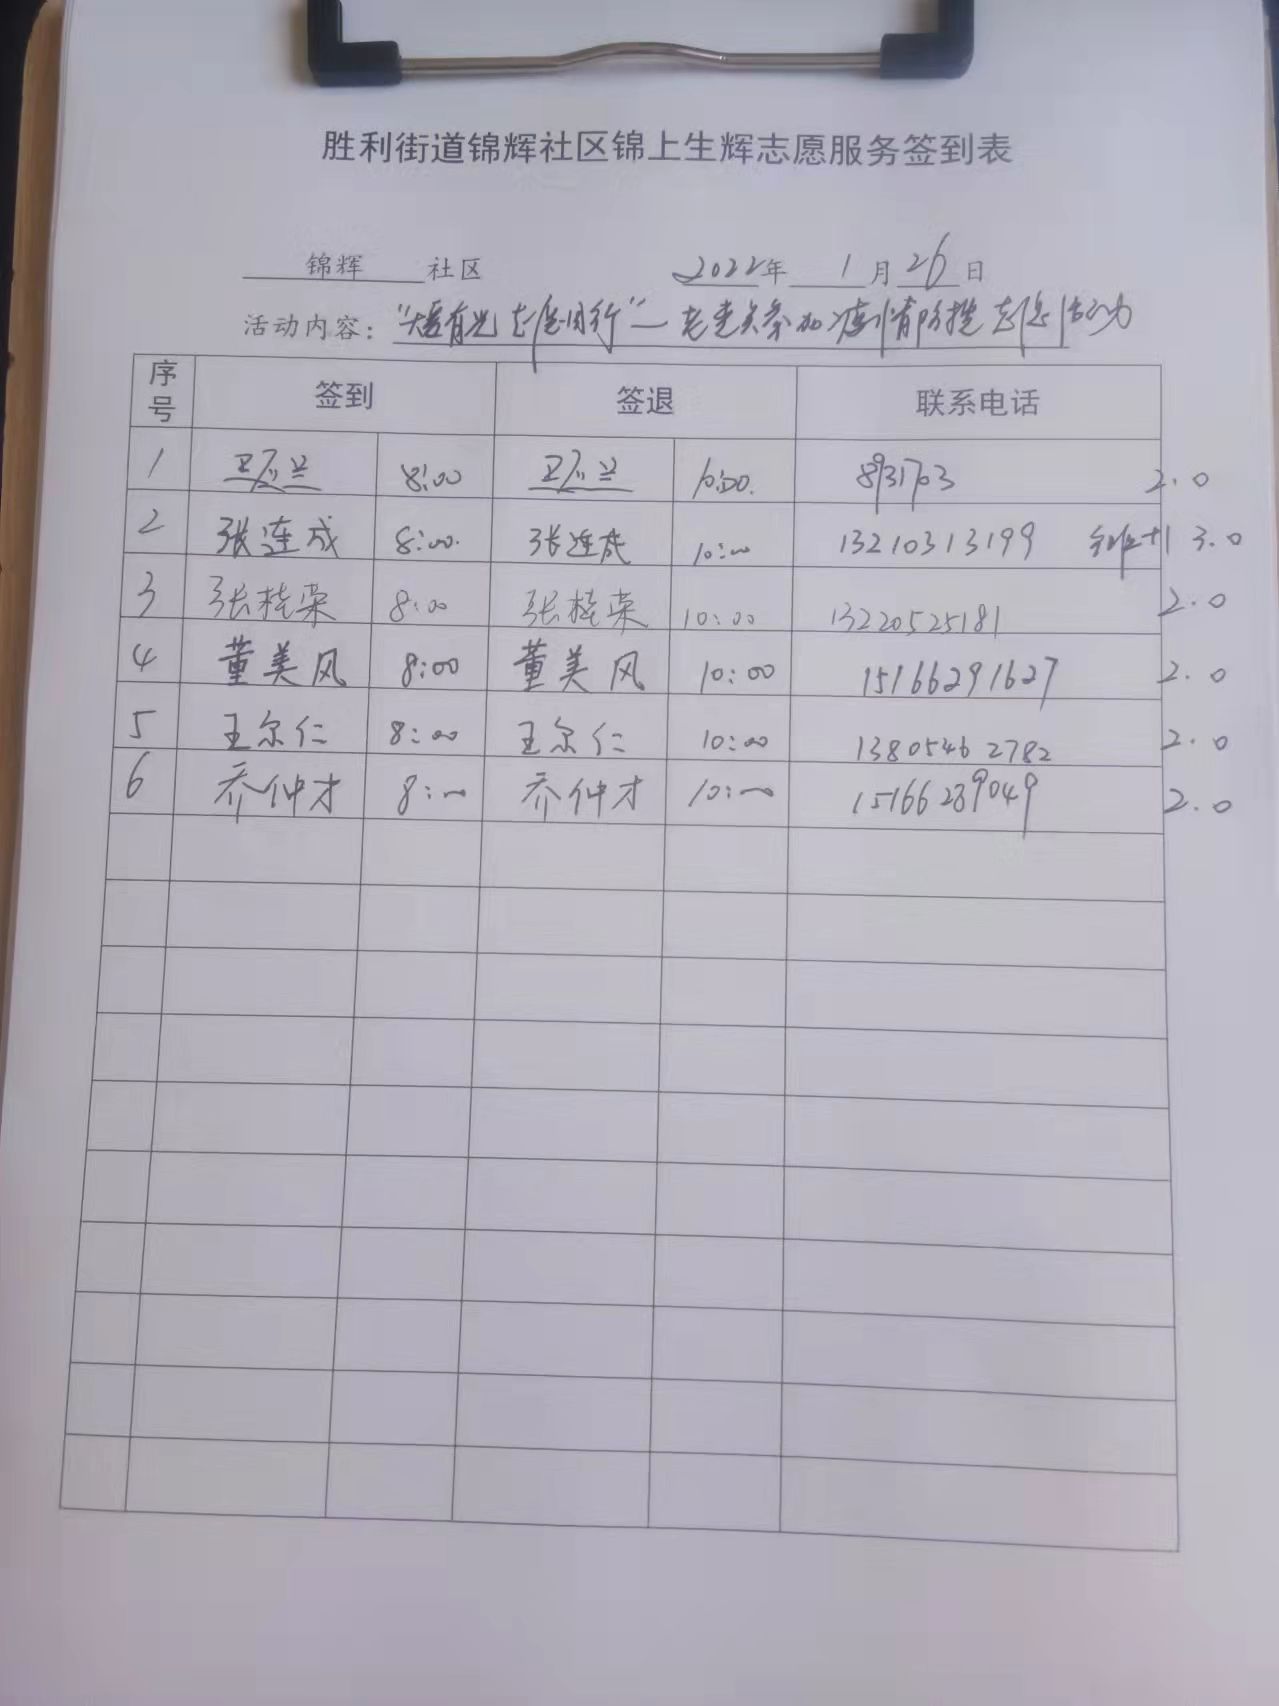 胜利街道锦辉社区锦上生辉志愿服务签到表
锦辉 社区 2022年 1月26日
活动内容：“大爱有光 志愿同行”— 老党员参加疫情防控志愿活动
序号 签到 签退 联系电话
1 8:00 10:00. 8931703 2.0
2 张连成 8:00. 张连成 10:00 13210313199 +1 3.0
3 张桂荣 8:00 张桂荣 10:00 13220525181 2.0
4 董美风 8:00 董美风 10:00 15166291627 2.0
5 王尔仁 8:00 王尔仁 10:00 13805462782 2.0
6 乔仲才 8:00 乔仲才 10:00 15166289049 2.0